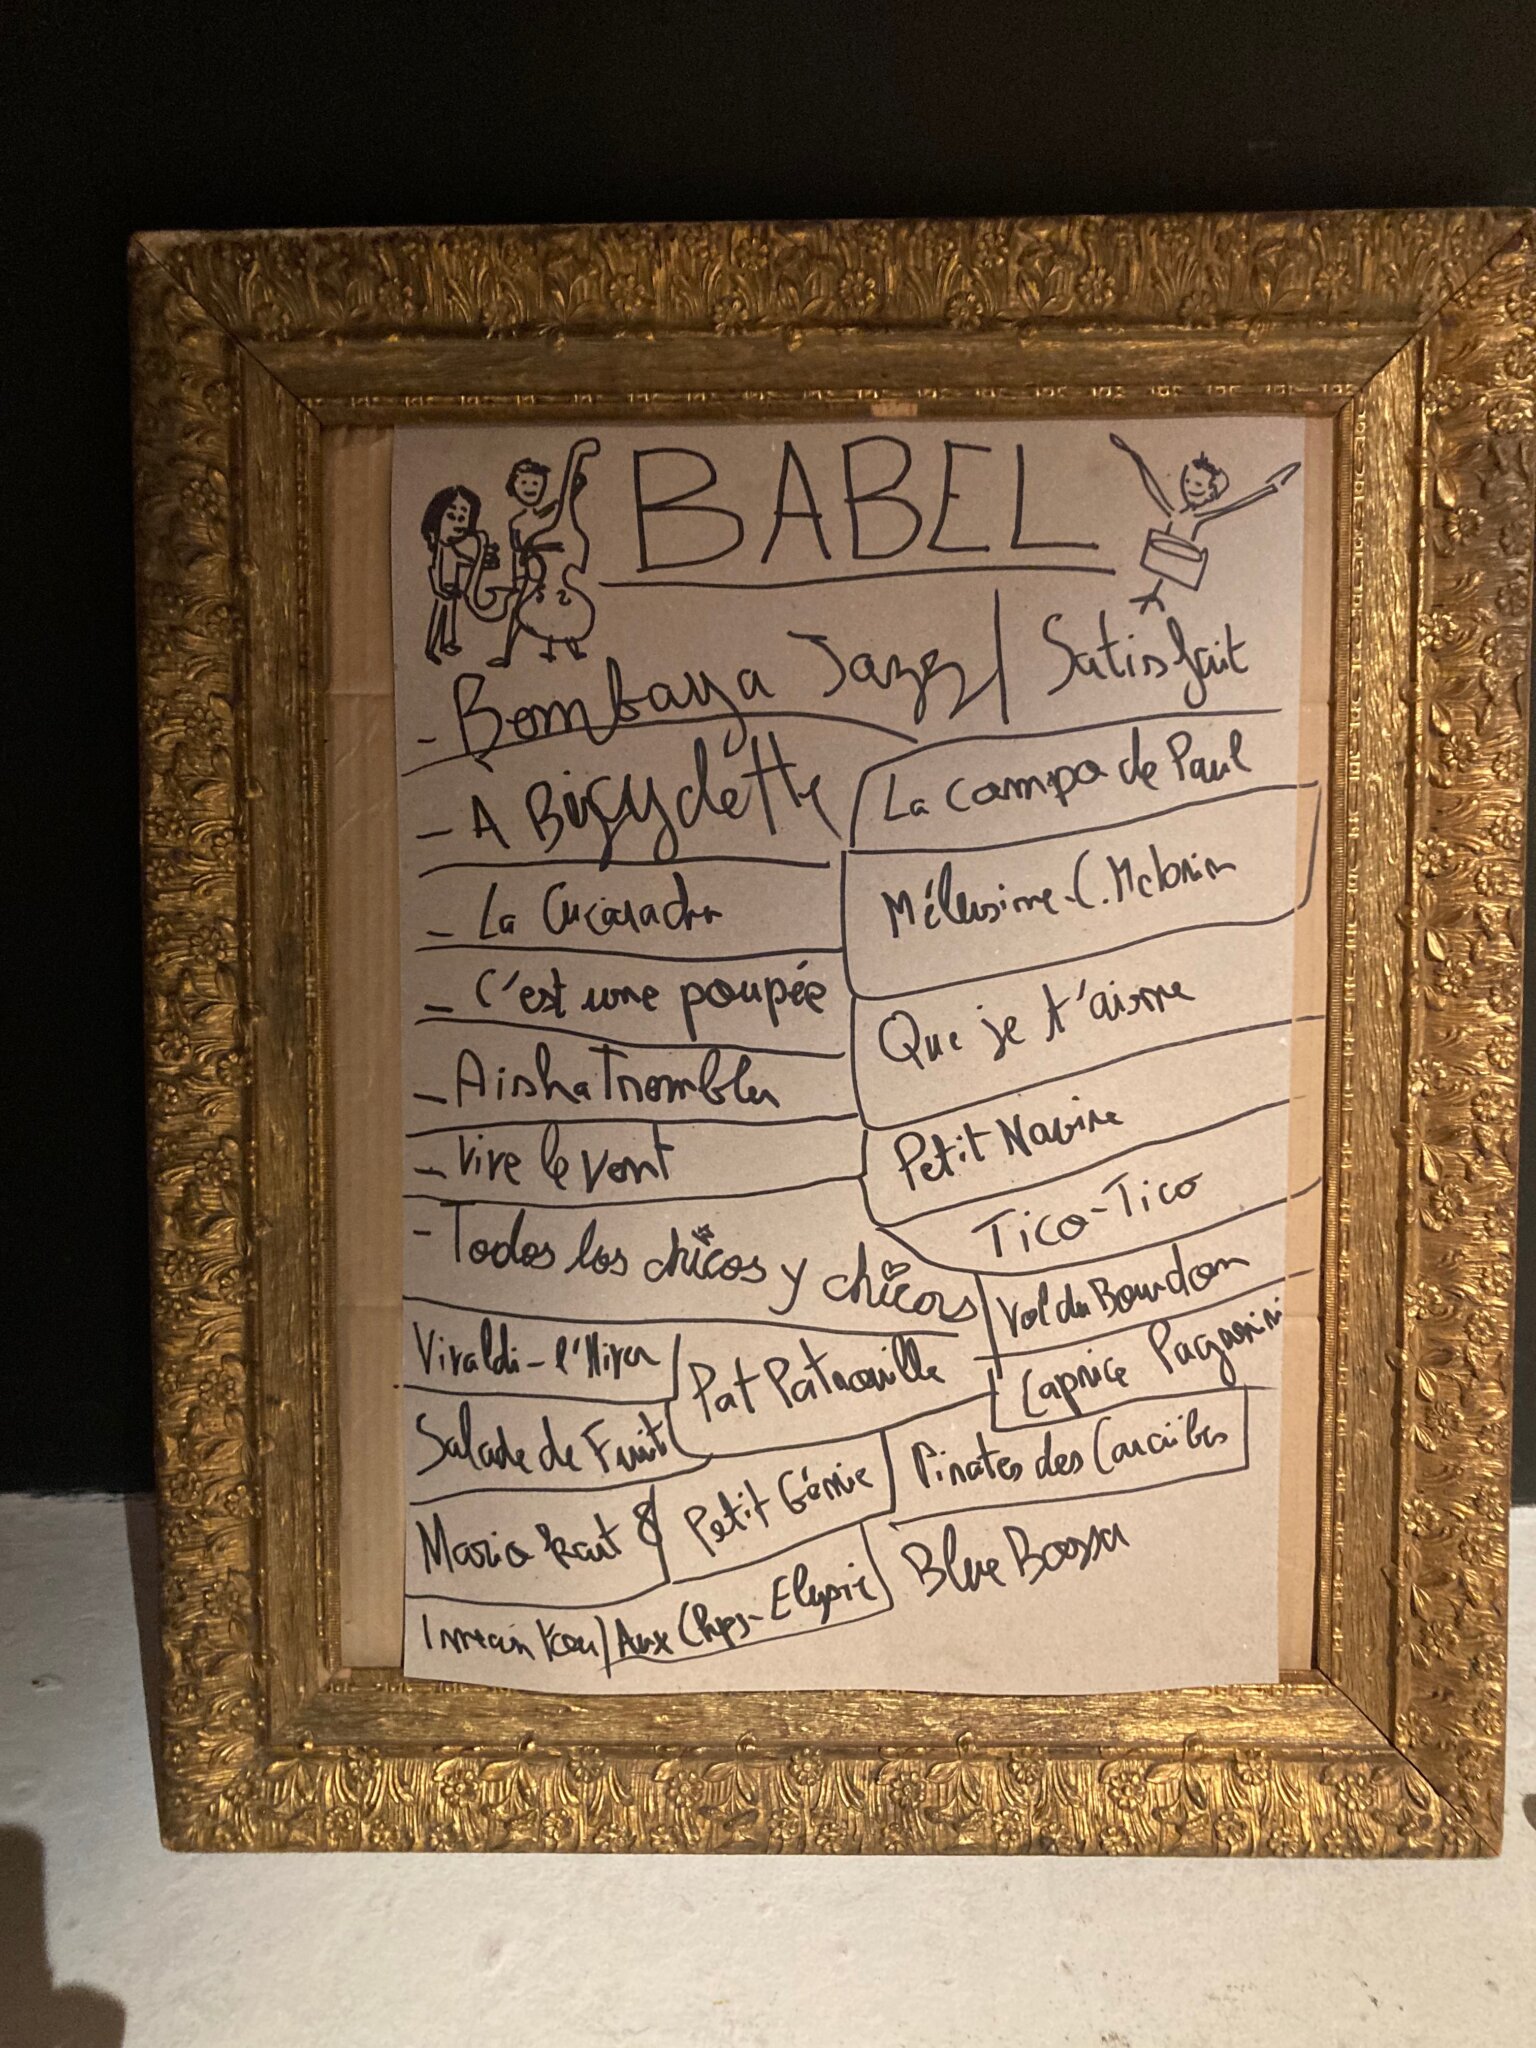 BABEL
- Bombaya Jazz / Satisfait
- À Bicyclette
La campa de Paul
- La Cucaracha
Mélusine - C. McLorin
- C'est une poupée
Que je t'aime
- Aisha Trombler
- Vive le vent
Petit Navire
Tico-Tico
- Todos los chicos y chicas
Vol du Bourdon
Vivaldi - l'Hiver
Pat Patrouille
Caprice Paganini
Salade de Fruit
Petit Génie
Pirates des Caraïbes
Mario kart 8
Blue Bossa
Inmain Kou / Aux Chps-Elysée